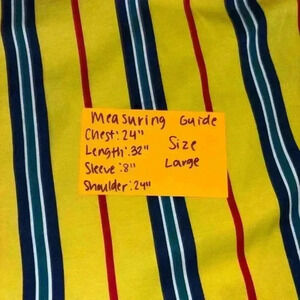 Measuring Guide
Chest: 24"
Length: 32"
Sleeve: 8"
Shoulder: 24"
Size
Large